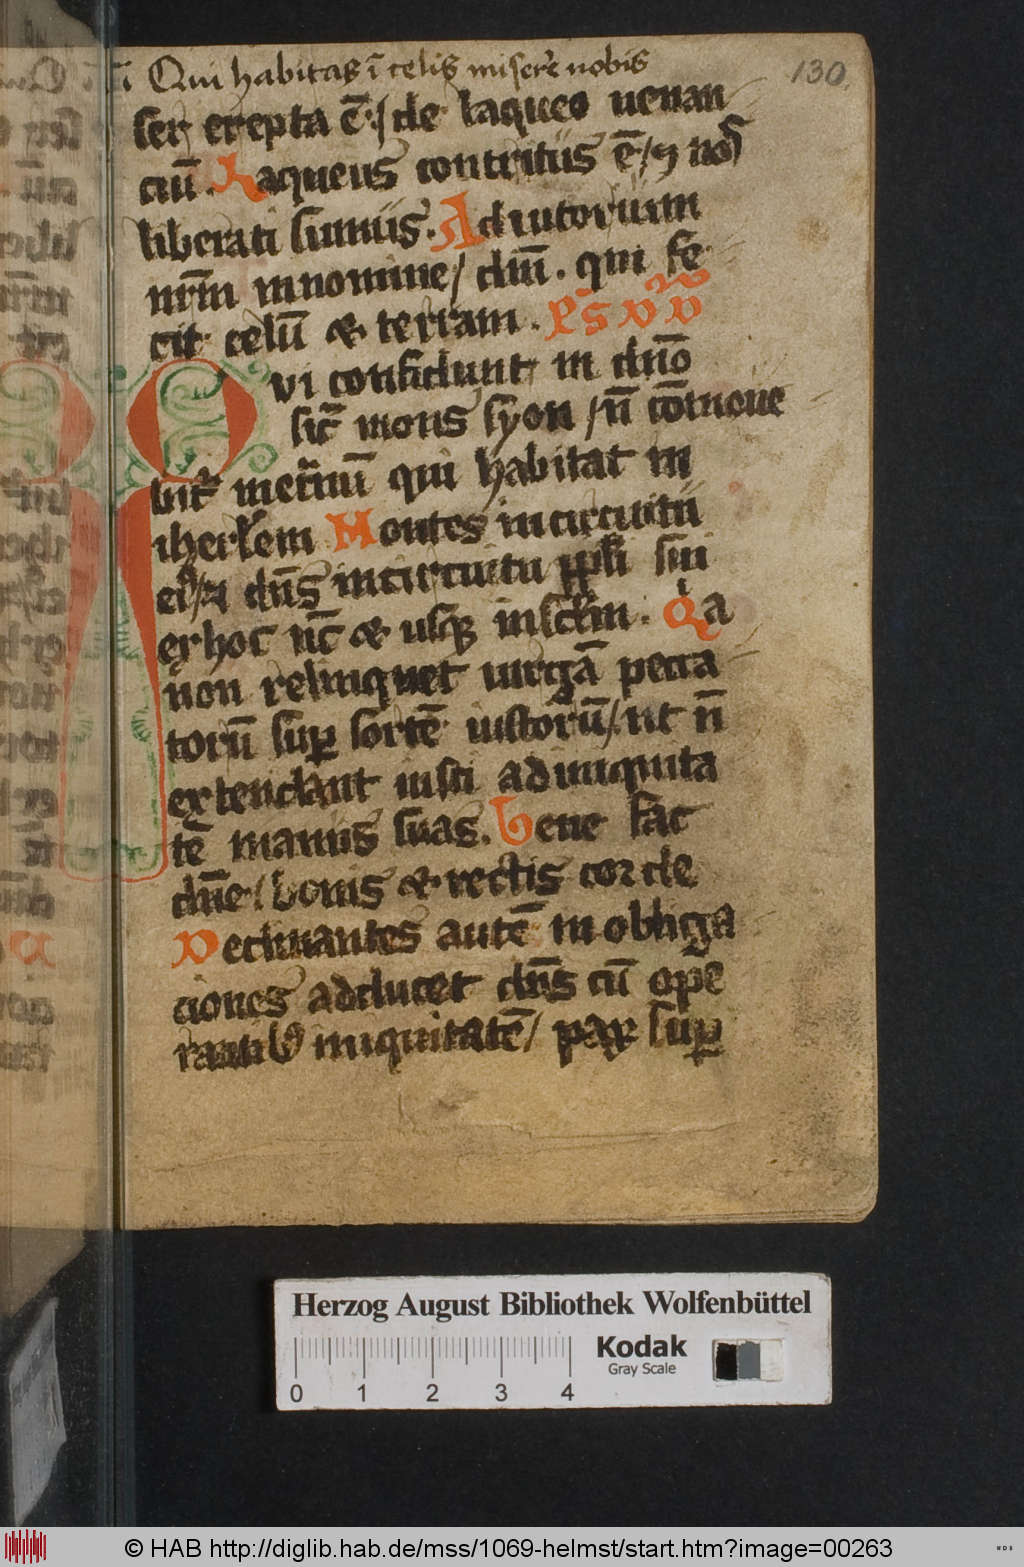 Qui habitas ī celis miserē nobis
130
ser erepta ē / de laqueo uenan
ciū. Laqueus contritus ē / ⁊ nos
liberati sumus. Adiutorium
nr̄m in nomine / dn̄i. qui fe
cit celū & terram. ps̄
Qvi confidunt in dn̄o
sic̄ mons syon / n̄ cōmoue
bit᷑ in et̄nū qui habitat in
iherl̄em Montes in circuitu
eiꝰ / ⁊ dn̄s in circuitu ppl̄i sui
ex hoc nc̄ & usqꝫ in sc̄lm. Qͥa
non relinquet uirgā pecca
torū suꝑ sortē iustorū / ut n̄
extendant iusti ad iniquita
tē manus suas. Bene fac
dn̄e / bonis & rectis corde
Declinantes autē in obliga
ciones adducet dn̄s cū ope
rantibꝰ iniquitatē / pax suꝑ
Herzog August Bibliothek Wolfenbüttel
Kodak
Gray Scale
0 1 2 3 4
© HAB http://diglib.hab.de/mss/1069-helmst/start.htm?image=00263